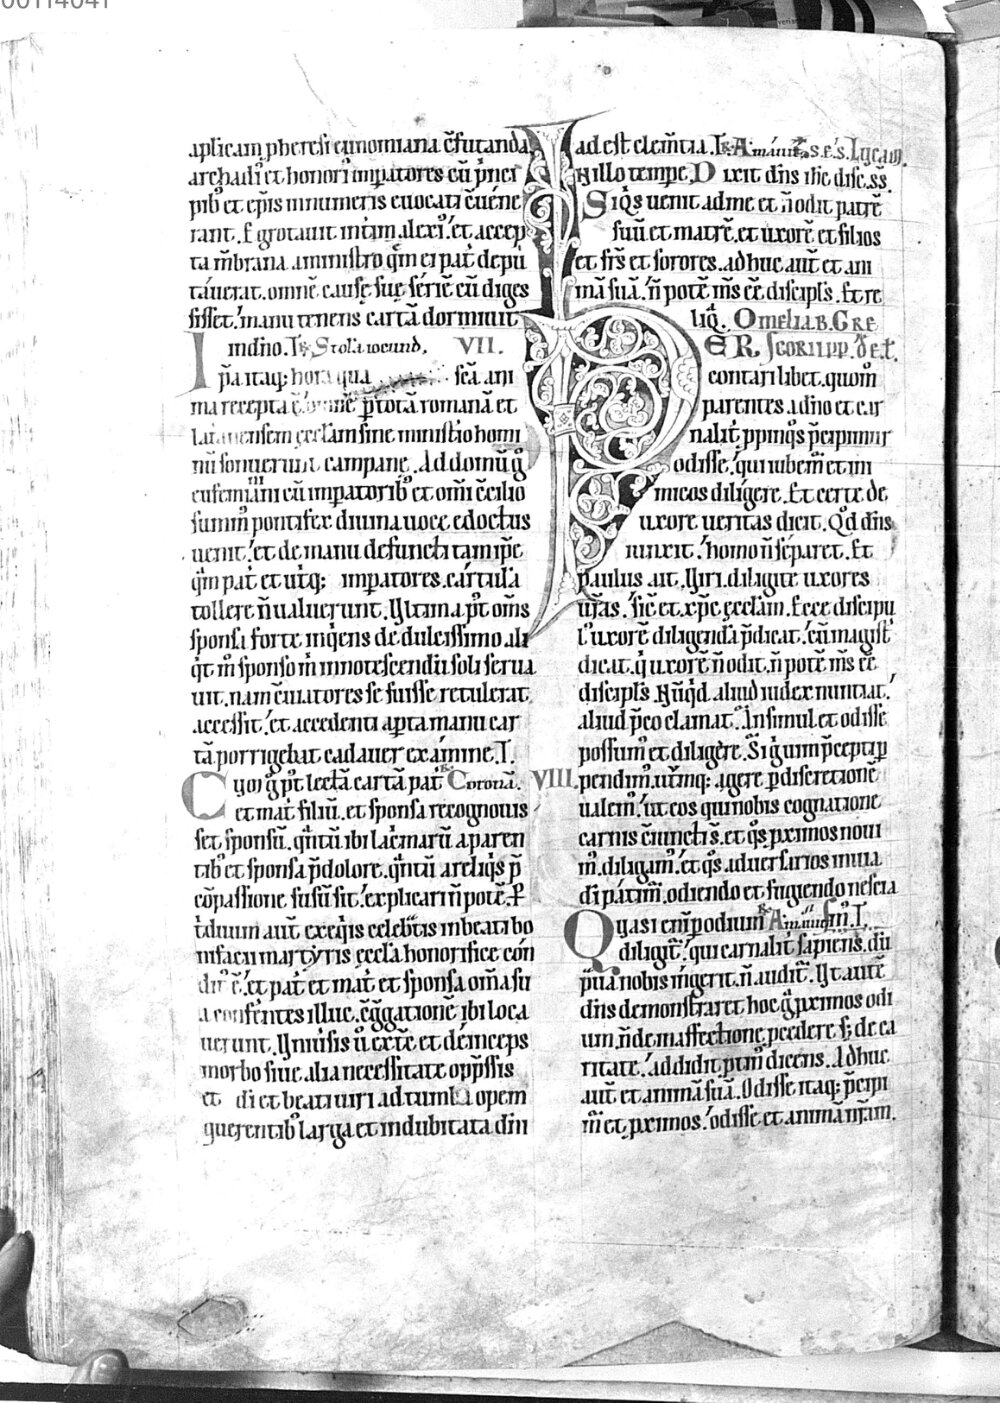 00114041
aplicam pheresi eunomiana c̄futanda
archadi' et honori' imp̄atores cū p̄ncı
pib' et ep̄is innumeris euocati cūene
rant. Egrotauit intim alexi'. et accep
ta m̄brana aministro qm̄ ei pat̄ depu
tauerat. omnē causę suę seriē cū diges
sisset. manu tenens cartā dormiuit
indn̄o. R̄ Stola iocund. VII.
Ipa itaq; hora qua sc̄a ani
ma recepta ē. omnē p̄ totā romanā et
lat̄anensem ęccl̄am sine ministio homi
nū sonuerunt campane. Ad domū g̊
eufemiani cū imp̄atorib' et om̄i c̄cilio
summ' pontifex diuina uoce edoctus
uenit. et de manu defuncti tam ip̄e
qm̄ pat̄ et utq; imp̄atores cartula
tollere n̄ ualuerunt. Vltima p̄t om̄s
sponsa forte inqens de dulcissimo ali
q̄t m̄ sponso m̄ innotescendū soli serua
uit. nam c̄uiatores se fuisse retulerat.
accessit. et accedenti apta manu car
tā porrigebat cadauer exanime. T.
Cuq̨ g̊ p̄t lectā cartā pat̄ R̄ Coronā. VIII.
et mat̄ filiū. et sponsa recognouis
set sponsū. q̄ntū ibi lac̄marū aparen
tib' et sponsa p̄dolore. q̄ntū areliq̄s p̄
cōpassione fusū sit. explicari n̄ potē. P̄
tduum aut̄ exeq̄is celebtis inbeati bo
nifacii martyris ęccl̄a honorifice con
dit' ē. et pat̄ et mat̄ et sponsa om̄a su
a conferentes illuc. c̄g̅gationē ibi loca
uerunt. Vniuisis u̇ extē et deinceps
morbo siue alia necessitate opp̄ssis
et di et beati uiri ad tumbā opem
querentib' larga et indubitata diu
ad est clem̄tia. R̄ A manu. s. e's. Lucam.
N illo tempe. Dixit dn̄s ih̄c disc. ss.
Siq̄s uenit adme et n̄ odit patrē
suū et matrē. et uxorē et filios
et frs̄ et sorores. adhuc aut̄ et ani
mā suā. n̄ potē m̄s ēē discipl̄s. Et re
liq̄. Omelia B. GRE
ER. SCORILPP. de t.
contari libet. quom̄
parentes. adn̄o et car
nalit̄ p̄pinq̄s p̄cipimur
odisse. qui iubem̄ et ini
micos diligere. Et certe de
uxore ueritas dicit. Qd̄ dn̄s
iunxit. homo n̄ separet. Et
paulus ait. Viri. diligite uxores
urās. sic̄ et xp̄c ęccl̄am. Ecce discipu
l' uxorē diligendā p̄dicat. cū magist
dicat. q̄ uxorē n̄ odit. n̄ potē m̄s ēē
discipl̄s. Nūq̄d. aliud iudex nuntiat.
aliud p̄co clamat. An simul et odisse
possum' et diligēre. Si g̊ uim p̄cepti p̄
pendim'. utmq; agere p̄ discretione
ualem'. ut eos qui nobis cognatione
carnis c̄iuncti s̄. et q̄s p̄ximos noui
m'. diligam'. et q̄s aduersarios in uia
d̄i patim̄. odiendo et fugiendo nescia
Quasi en̄ p̄ odium R̄ Amauit eū m'. T.
diligit̄. qui carnalit̄ sapiens. dū
p̄ua nobis ingerit. n̄ audit̄. Vt autē
dn̄s demonstraret hoc g̊ p̄ximos odi
um. n̄ de inaffectione p̄cedere s; de ca
ritate. addidit p̄tin' dicens. Adhuc
aut̄ et animā suā. Odisse itaq; p̄cipi
m̄ et p̄ximos. odisse et animā nr̄am.